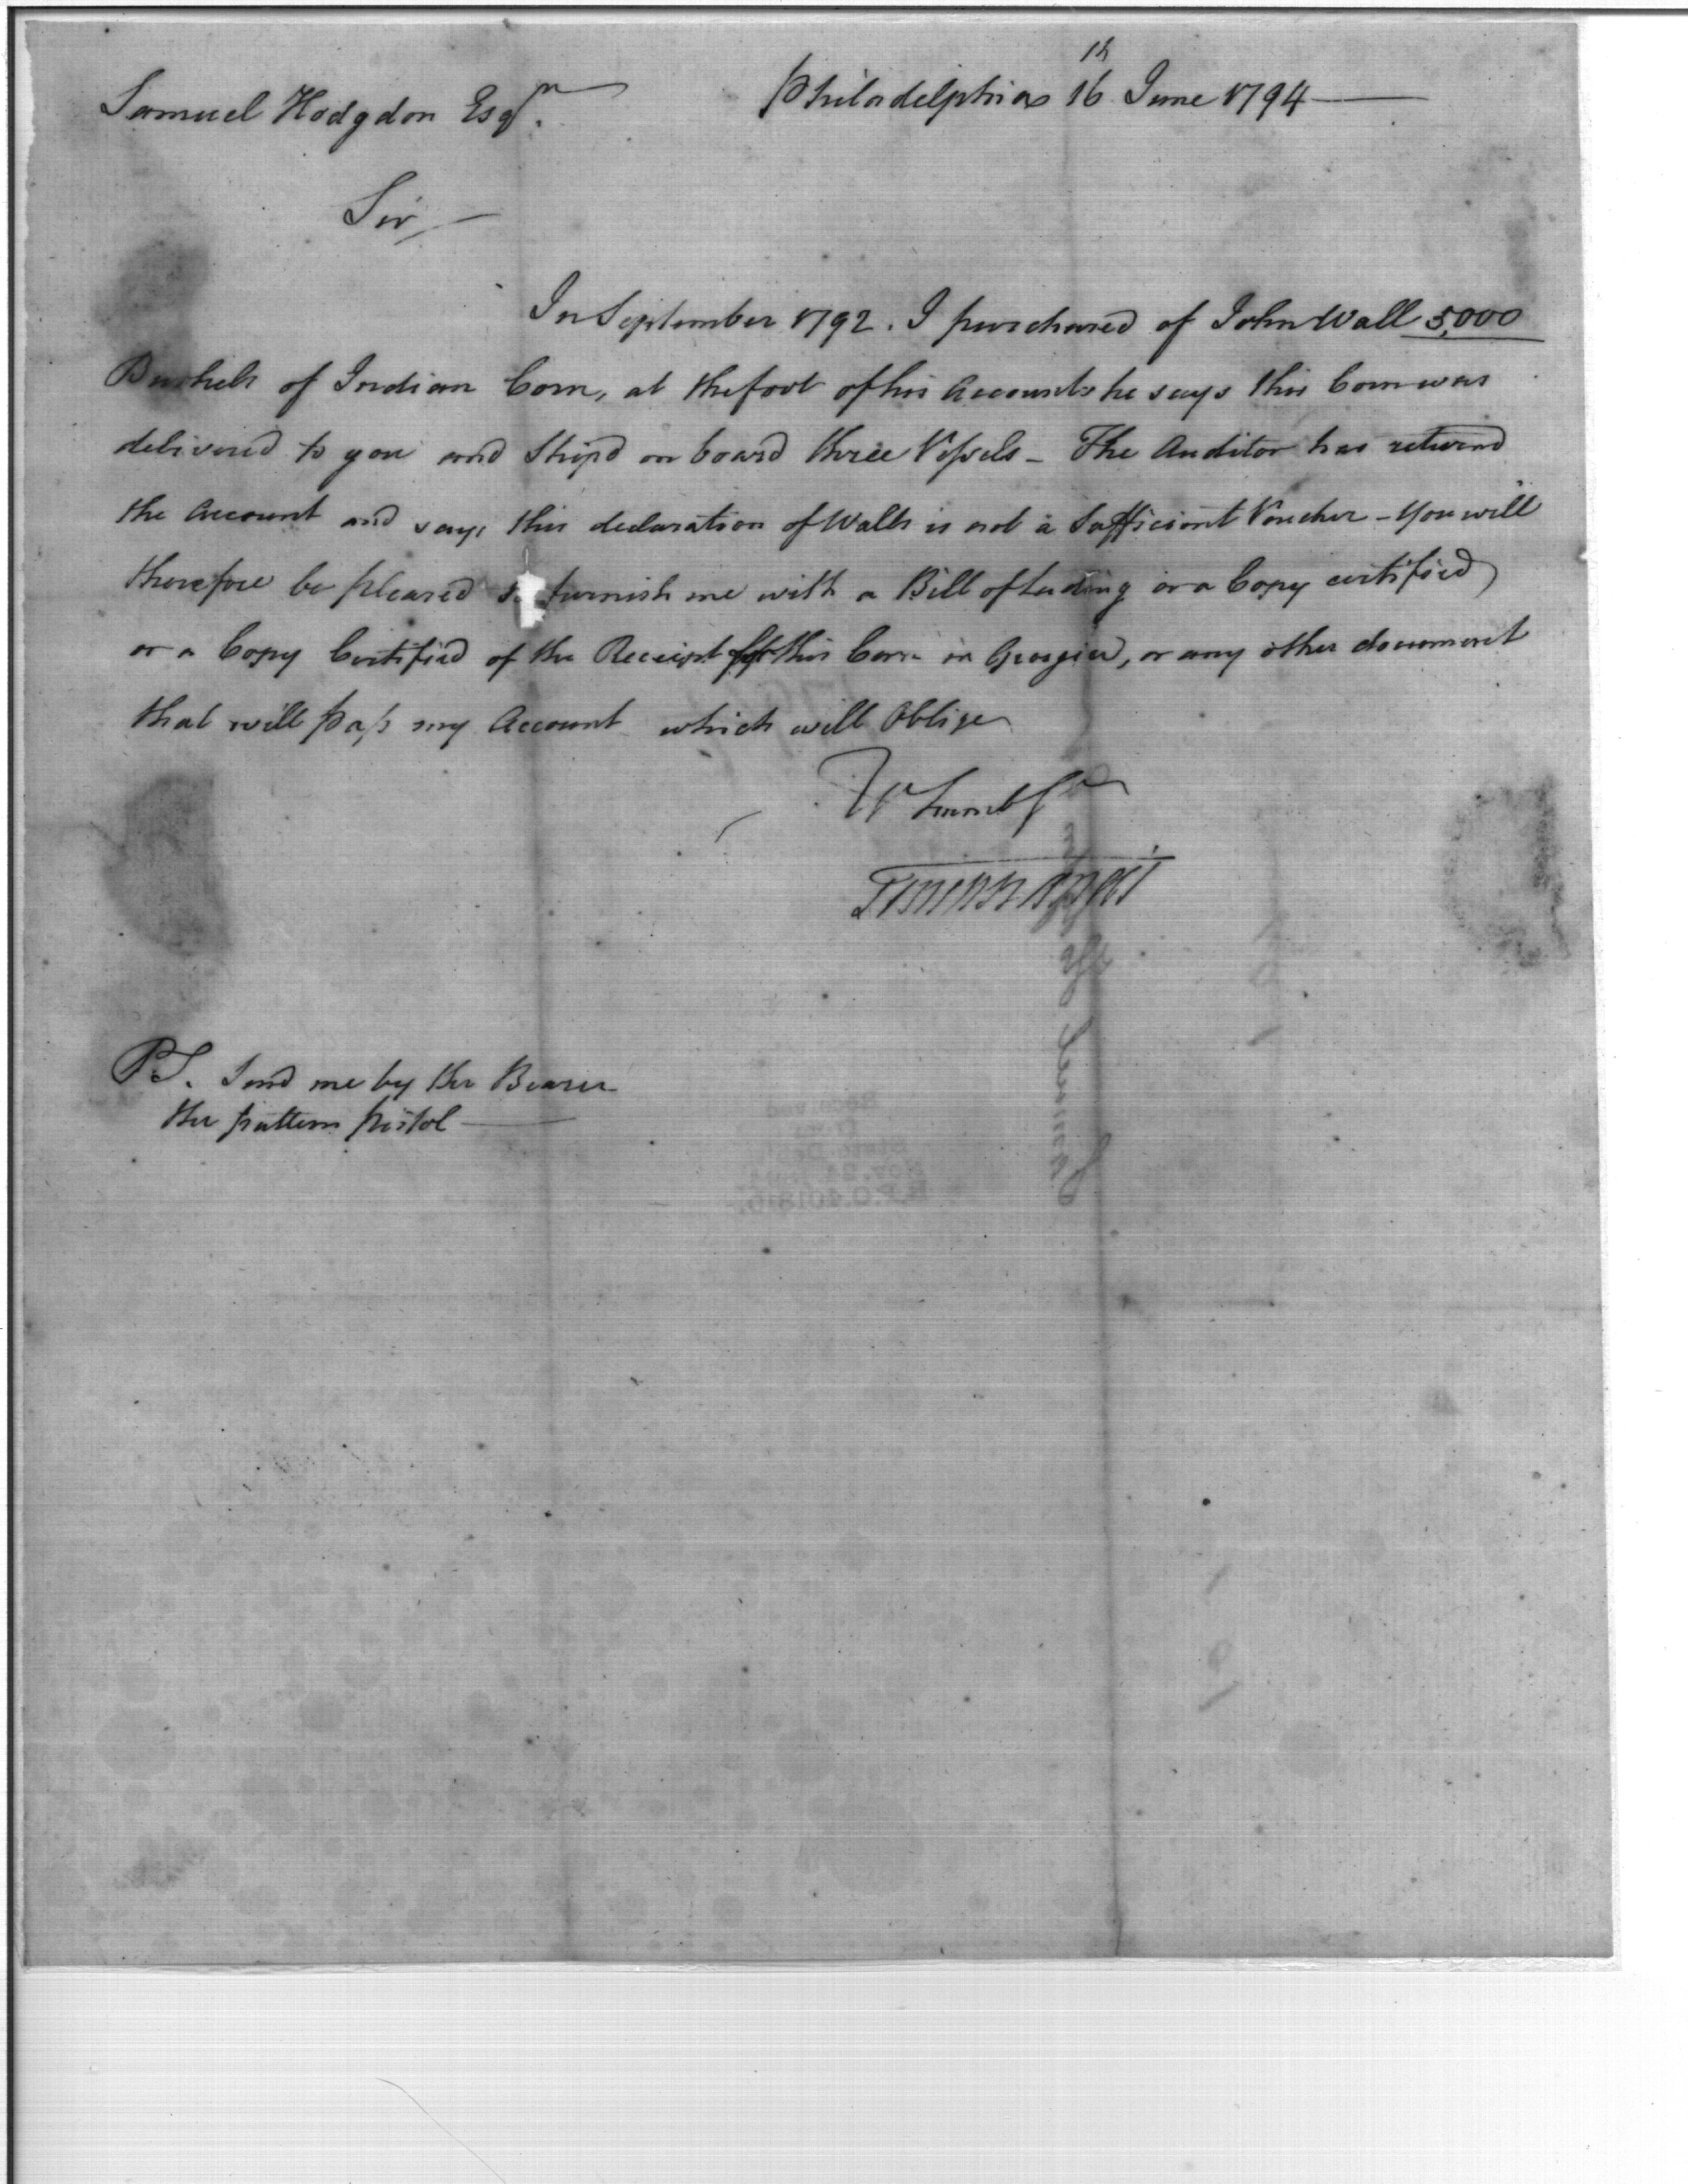 Philadelphia 16th June 1794
Samuel Hodgdon Esqr.
Sir
In September 1792. I purchased of John Wall 5,000
Bushels of Indian Corn, at the foot of his Accounts he says this Corn was
delivered to you and Shipd on board three Vessels - The Auditor has returnd
the Account and says this declaration of Walls is not a Sufficient Voucher - You will
therefore be pleased to furnish me with a Bill of Lading or a Copy certified
or a Copy Certified of the Receipt for this Corn in Georgia, or any other document
that will pass my Account which will Oblige
Yr humbl St
Tench Francis
PS. Send me by the Bearer
the pattern pistol